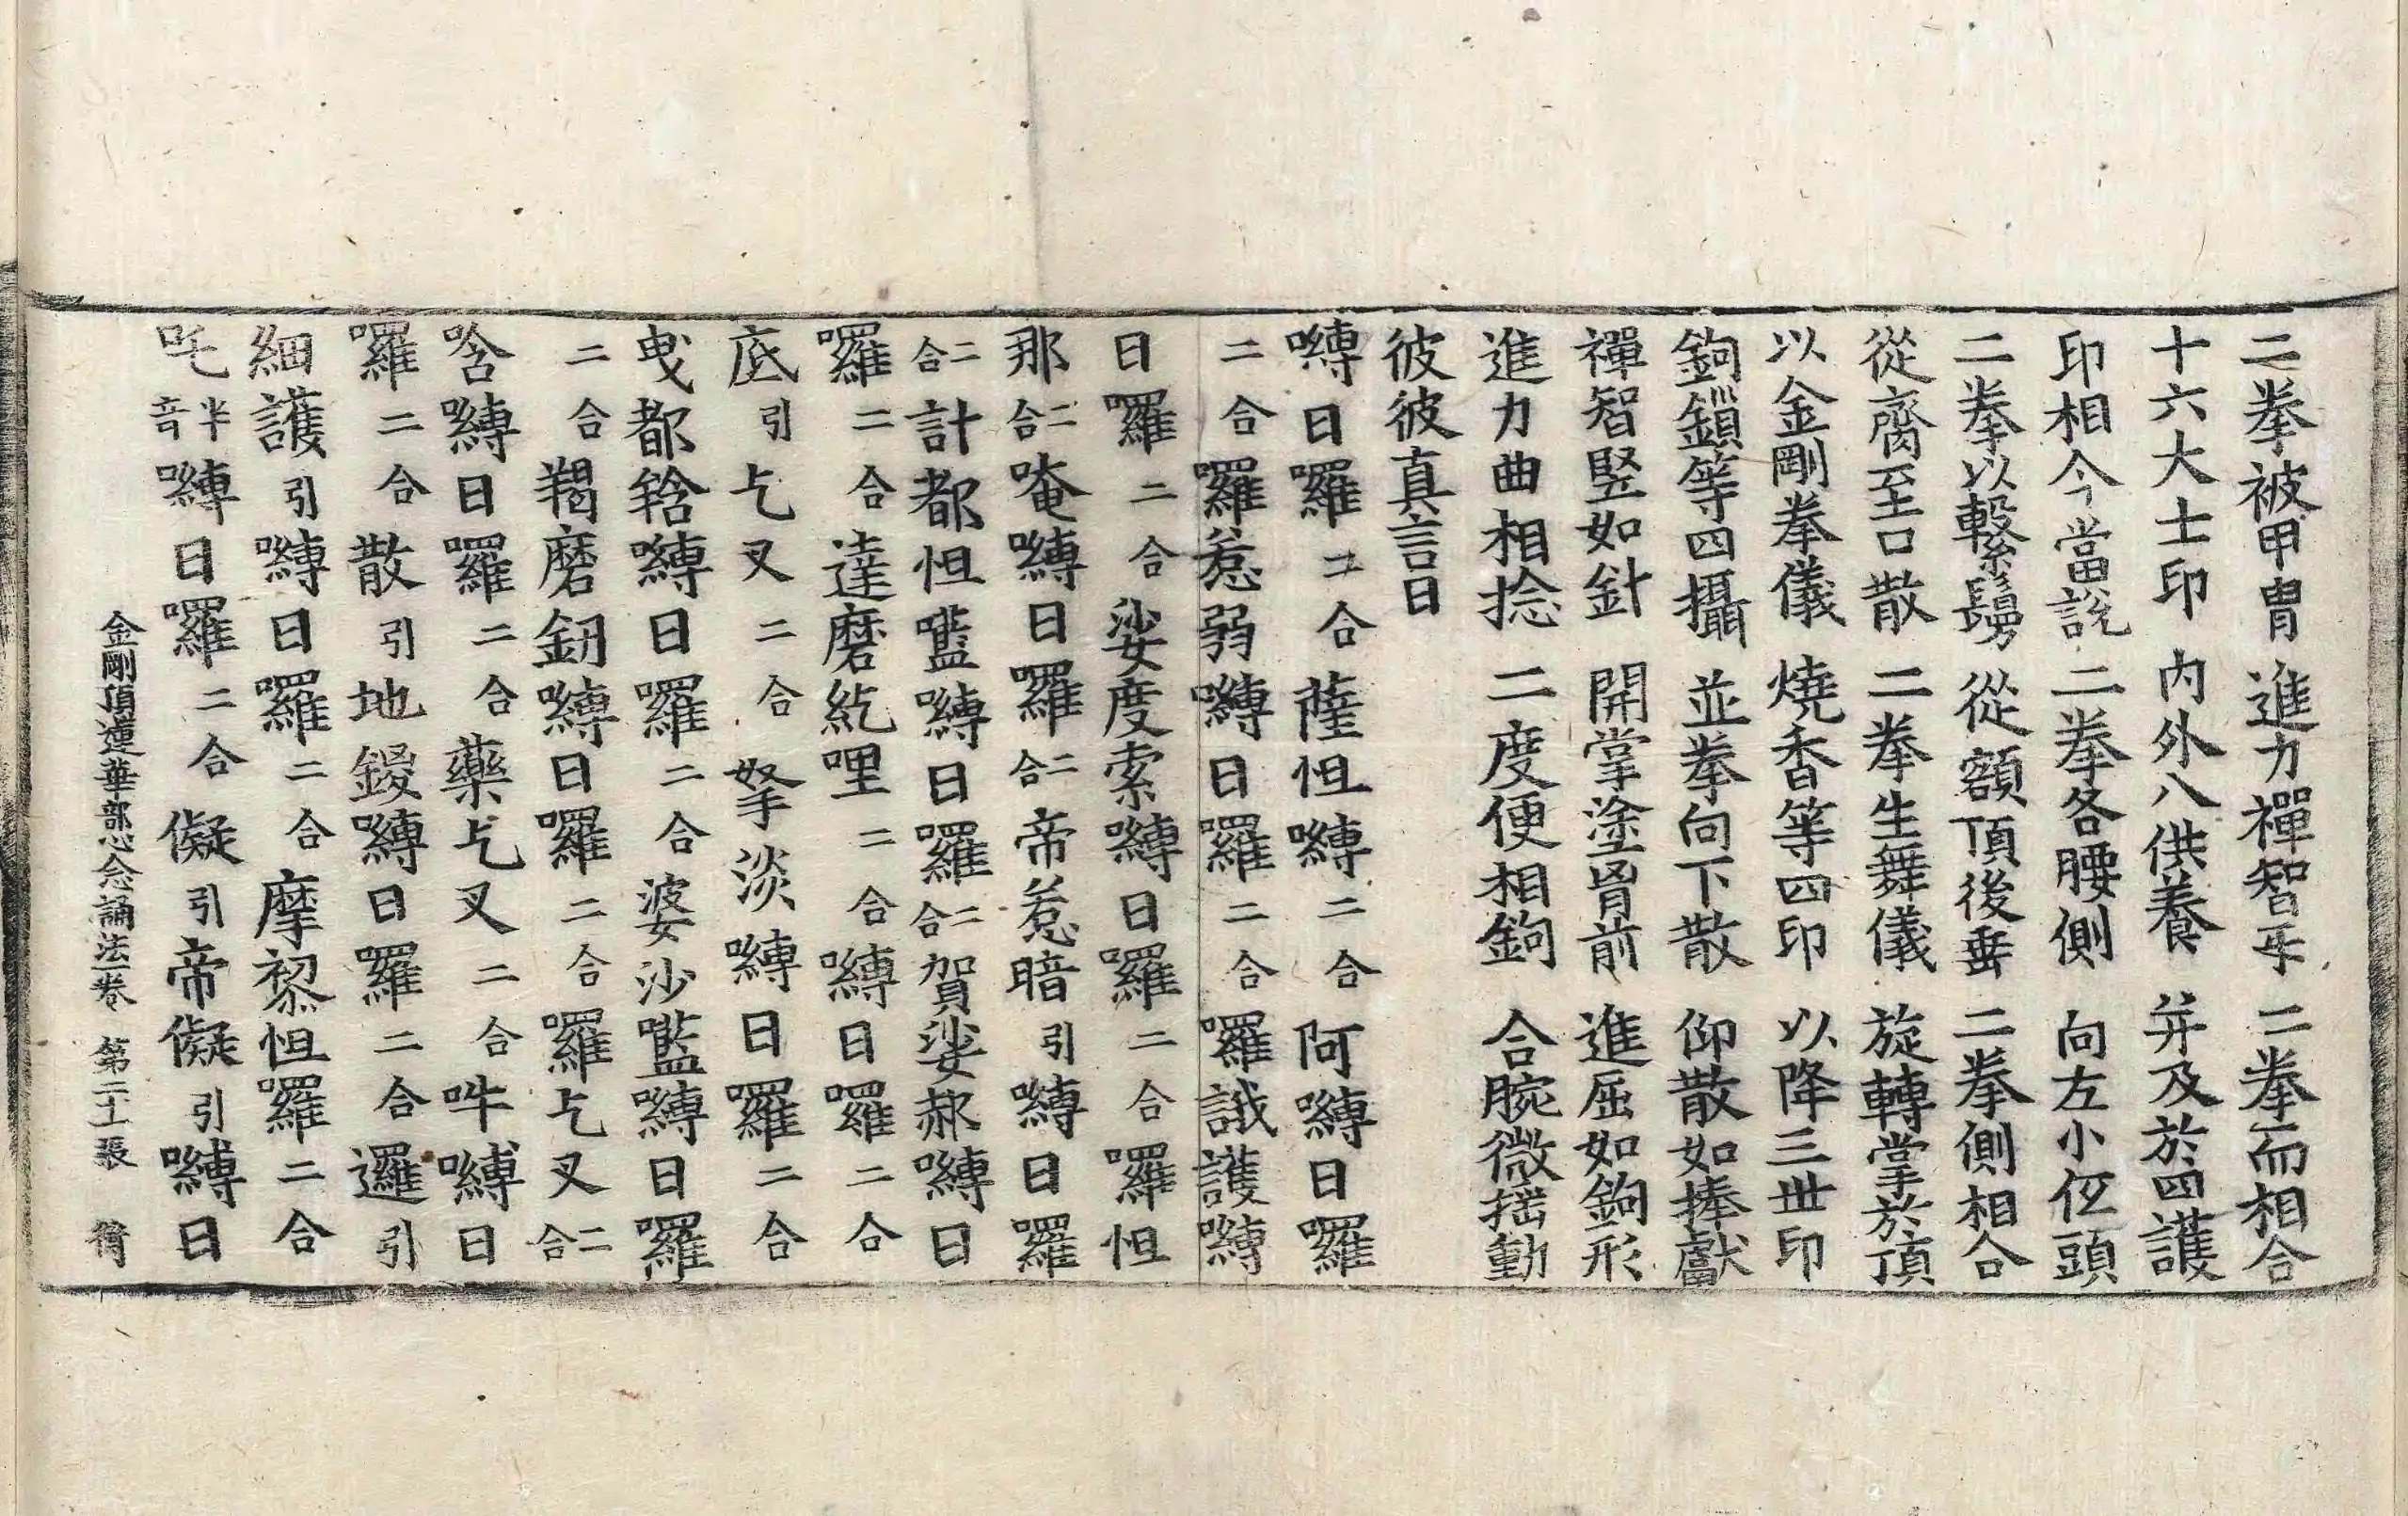 二拳被甲冑　進力禪智牙　二拳而相合
十六大士印　內外八供養　并及於四護
印相今當說　二拳各腰側　向左小低頭
二拳以繫鬘　從額頂後垂　二拳側相合
從齎至口散　二拳生舞儀　旋轉掌於頂
以金剛拳儀　燒香等四印　以降三世印
鉤鎖等四攝　並拳向下散　仰散如捧獻
禪智竪如針　開掌塗胷前　進屈如鉤形
進力曲相捻　二度便相鉤　合腕微摇動
彼彼真言曰
嚩日囉二合薩怛嚩二合阿嚩日囉
二合囉惹弱嚩日囉二合囉誐護嚩
日囉二合娑度索嚩日囉二合囉怛
那二合唵嚩日囉二合帝惹暗引嚩日囉
二合計都怛嚂嚩日囉二合賀娑郝嚩日
囉二合達磨紇哩二合嚩日囉二合
底引乞叉二合拏淡嚩日囉二合
曳都鋡嚩日囉二合婆沙嚂嚩日囉
二合羯磨釰嚩日囉二合囉乞叉二合
唅嚩日囉二合藥乞叉二合吽嚩日
囉二合散引地鑁嚩日囉二合邏引
細護引嚩日囉二合摩嚟怛囉二合
吒半音嚩日囉二合儗引帝儗引嚩日
金剛頂蓮華部心念誦法一卷　第二十張　衡